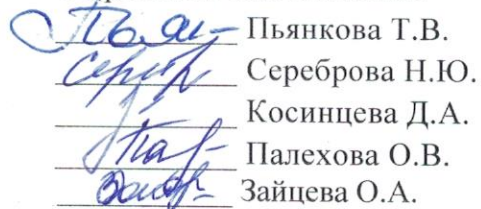 Пьянкова Т.В.
Сереброва Н.Ю.
Косинцева Д.А.
Палехова О.В.
Зайцева О.А.